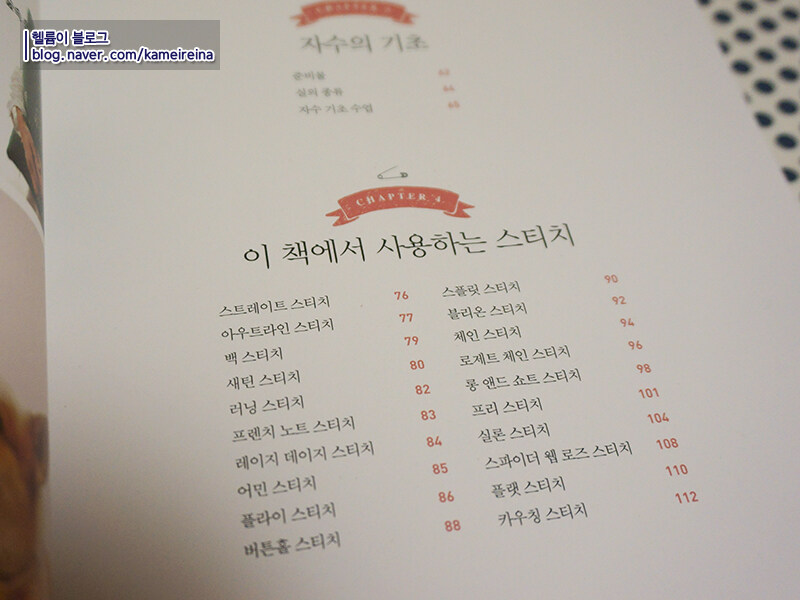 헬륨이 블로그
blog.naver.com/kameireina
CHAPTER 3
자수의 기초
준비물 62
실의 종류 64
자수 기초 수업 65
CHAPTER 4
이 책에서 사용하는 스티치
스트레이트 스티치 76
아우트라인 스티치 77
백 스티치 79
새틴 스티치 80
러닝 스티치 82
프렌치 노트 스티치 83
레이지 데이지 스티치 84
어민 스티치 85
플라이 스티치 86
버튼홀 스티치 88
스플릿 스티치 90
블리온 스티치 92
체인 스티치 94
로제트 체인 스티치 96
롱 앤드 쇼트 스티치 98
프리 스티치 101
실론 스티치 104
스파이더 웹 로즈 스티치 108
플랫 스티치 110
카우칭 스티치 112